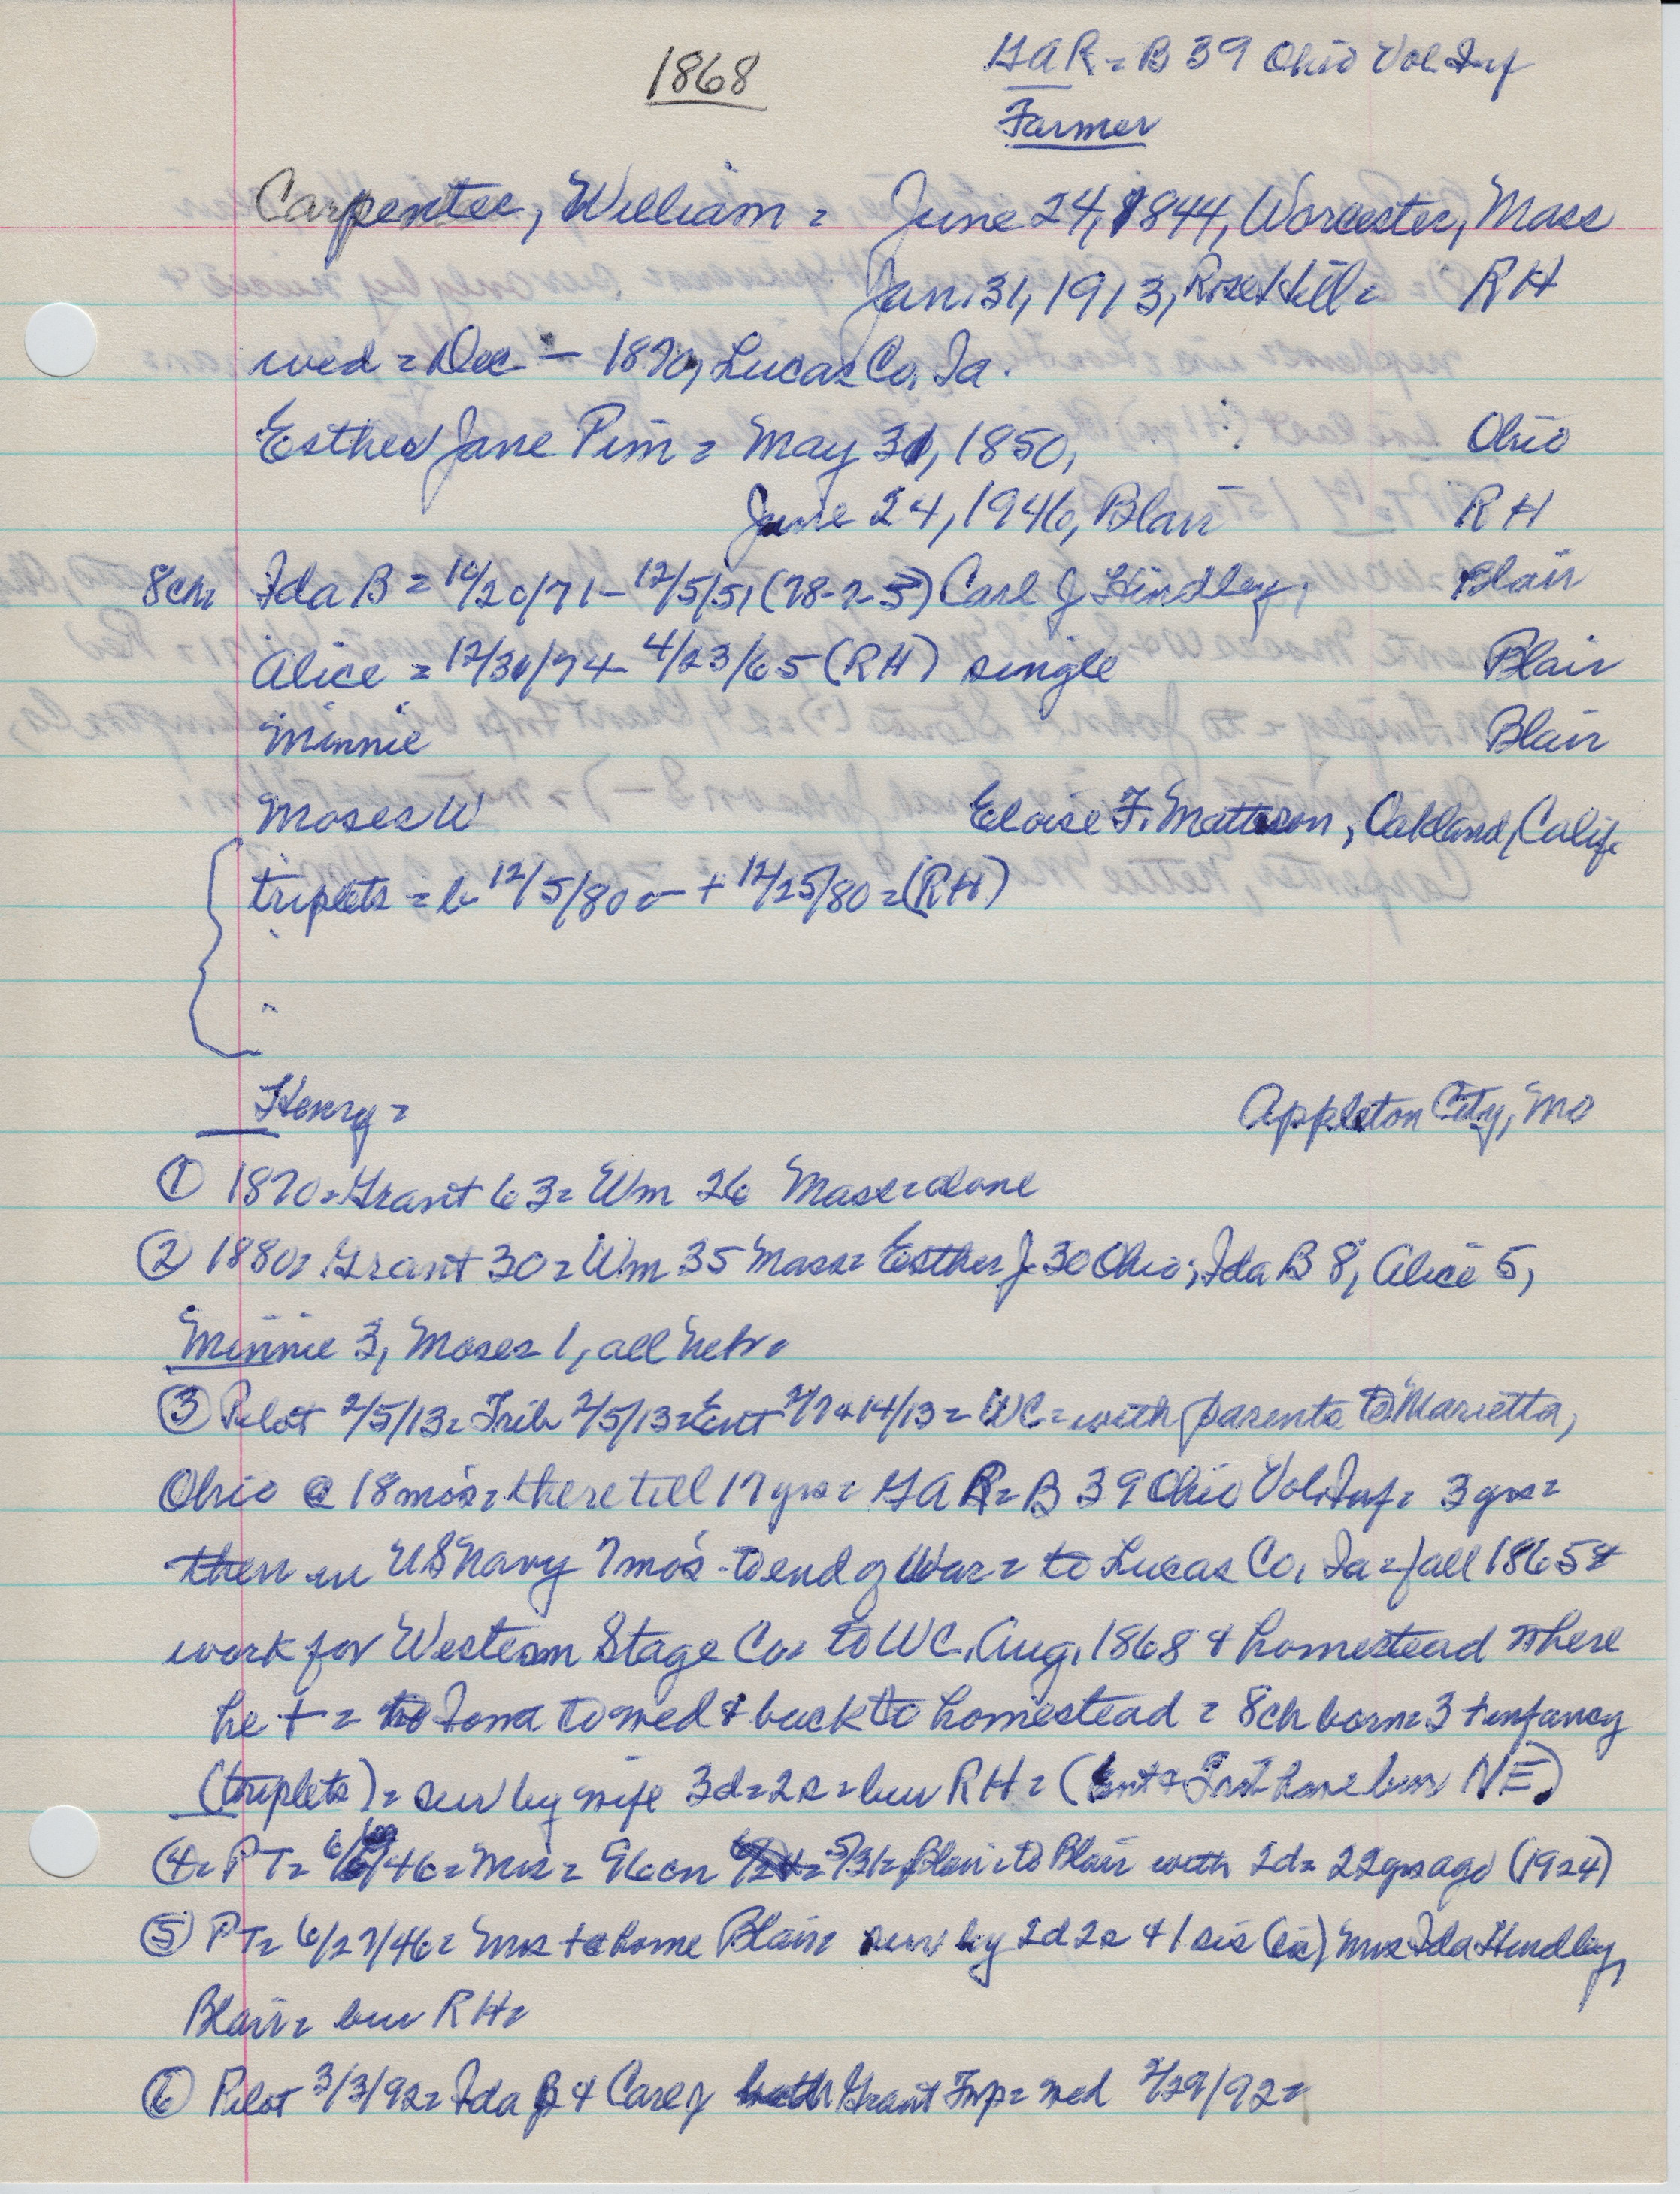 1868
GAR = B 39 Ohio Vol. Inf
Farmer
Carpenter, William = June 24, 1844, Worcester, Mass
Jan. 31, 1913, Rose Hill = RH
wed = Dec — 1870, Lucas Co, Ia.
Esther Jane Pim = May 31, 1850, Ohio
June 24, 1946, Blair RH
8 ch = Ida B = 10/20/71 – 12/5/51 Carl J Hindley, Blair
Alice = 12/30/74 – 4/23/65 (RH) single Blair
Minnie Blair
Moses W Eloise F. Matteson, Oakland, Calif.
triplets = b 12/5/80 = + 12/25/80 = (RH)
Henry = Appleton City, Mo
① 1870 = Grant 63 = Wm 26 Mass = alone
② 1880 = Grant 30 = Wm 35 Mass = Esther J 30 Ohio; Ida B 8, Alice 5,
Minnie 3, Moses 1, all Nebr =
③ Pilot 2/5/13 = Trib 2/5/13 = Ent 2/7 & 14/13 = WC = with parents to Marietta,
Ohio @ 18 mo's = there till 17 yrs = GAR = B 39 Ohio Vol. Inf = 3 yrs =
then in US Navy 7 mo's - to end of War = to Lucas Co, Ia = fall 1865 &
work for Western Stage Co = to WC, Aug, 1868 & homestead where
he + = to Iowa to wed & back to homestead = 8 ch born = 3 + infancy
(triplets) = surv by wife 3d = 2s = bur RH = (Ent & bur NE)
④ = PT = 6/ /46 = Mrs = 96 on 5/31 = Blair = to Blair with 2d = 22 yrs ago (1924)
⑤ PT = 6/27/46 = Mrs + @ home Blair = surv by 2d 2s & 1 sis (sic) Mrs Ida Hindley,
Blair = bur RH =
⑥ Pilot 3/3/92 = Ida B & Carl J both Grant Twp = wed 2/29/92 =